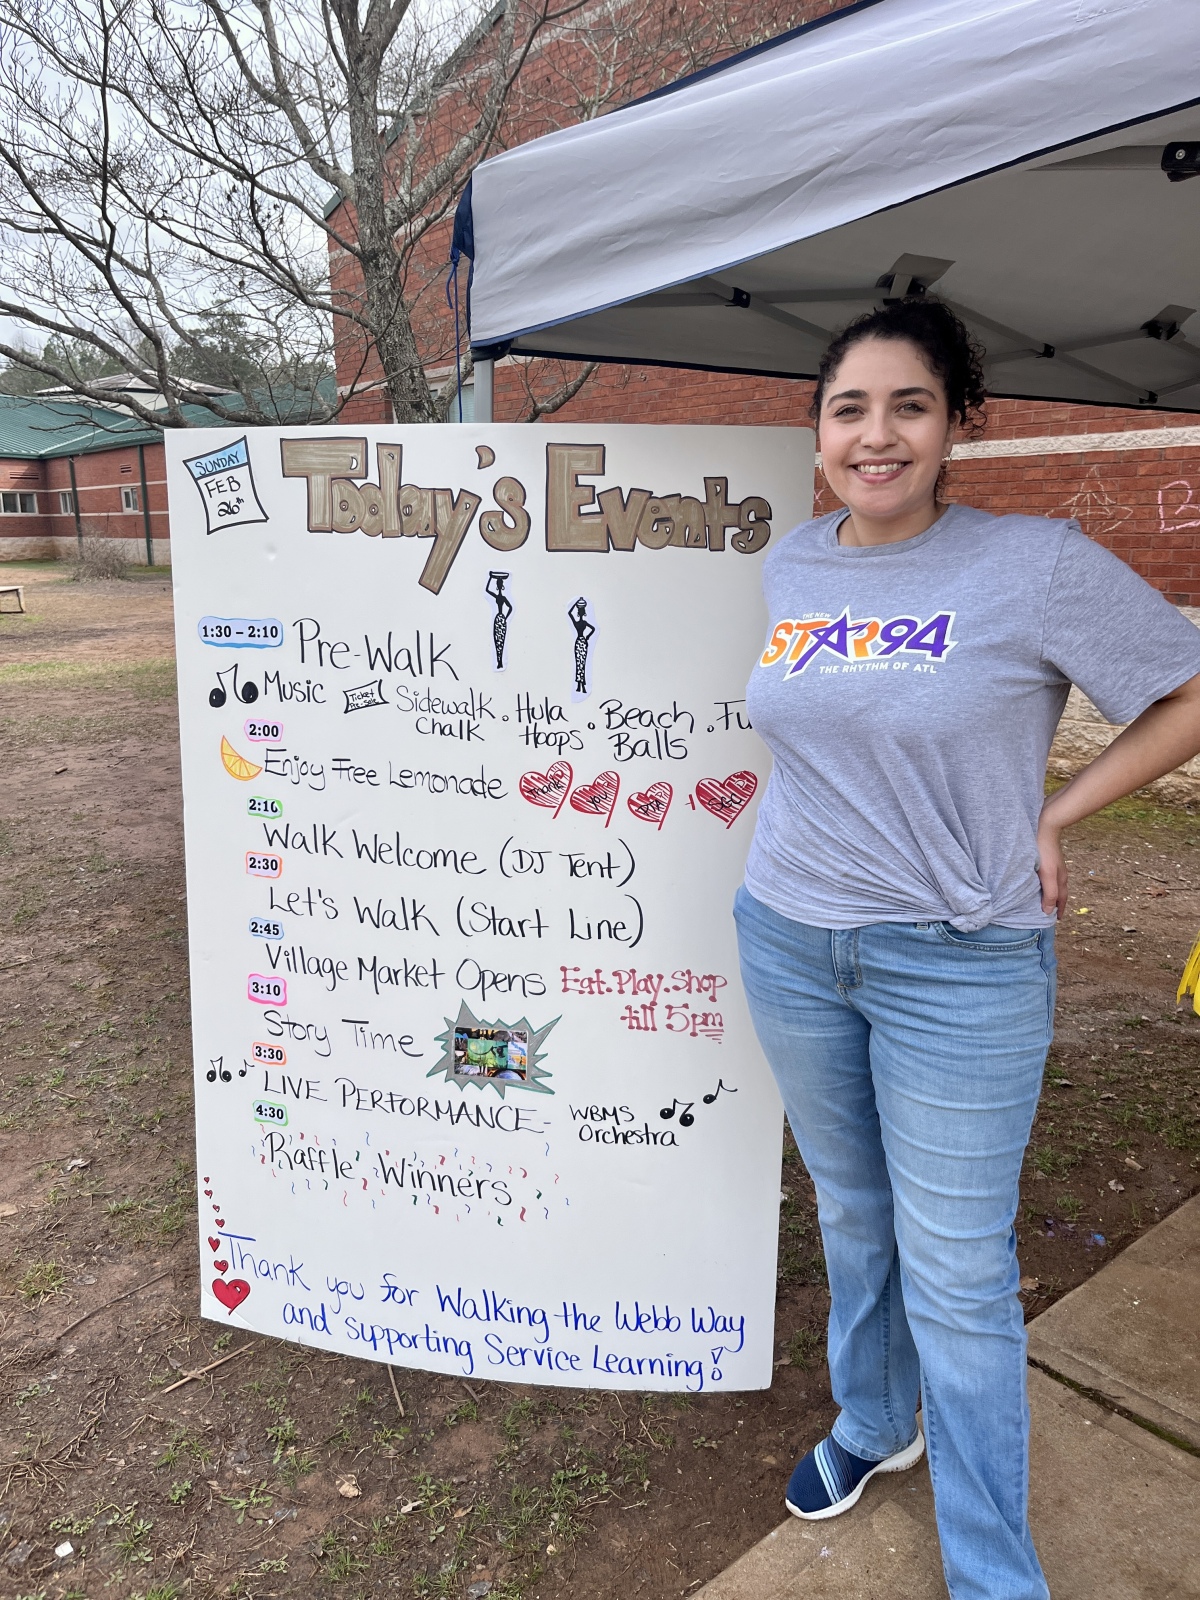 SUNDAY
FEB
26th
Today's Events
1:30 – 2:10
Pre-Walk
Music
Ticket
Pre-Sale
Sidewalk
Chalk
• Hula
Hoops
• Beach
Balls
• Fu
2:00
Enjoy Free Lemonade
Thank
you
PTA
+
2:10
Walk Welcome (DJ Tent)
2:30
Let's Walk (Start Line)
2:45
Village Market Opens
Eat.Play.Shop
till 5pm
3:10
Story Time
3:30
LIVE PERFORMANCE-
WBMS
Orchestra
4:30
Raffle Winners
Thank you for Walking the Webb Way
and supporting Service Learning!
THE NEW
STAR94
THE RHYTHM OF ATL